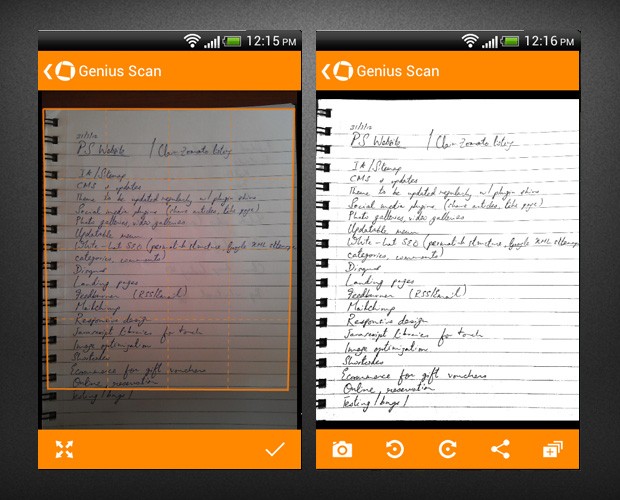 12:15 PM
Genius Scan
PS Website / Claim Zomato listing
IA/Sitemap
CMS + updates
Theme to be updated regularly w/ plugin
Social media plugins (share articles, like page)
Photo galleries, video galleries
Updatable menu
White-hat SEO (permalink structure, google XML sitemap
categories, comments)
Disqus
Landing pages
Feedburner (RSS/Email)
Mailchimp
Responsive design
Javascript libraries for touch
Image optimization
Shortcodes
Ecommerce for gift vouchers
Online reservation
Testing/bugs/
12:16 PM
Genius Scan
PS Website / Claim Zomato listing
IA/Sitemap
CMS + updates
Theme to be updated regularly w/ plugin
Social media plugins (share articles, like page)
Photo galleries, video galleries
Updatable menu
White-hat SEO (permalink structure, google XML sitemap
categories, comments)
Disqus
Landing pages
Feedburner (RSS/Email)
Mailchimp
Responsive design
Javascript libraries for touch
Image optimization
Shortcodes
Ecommerce for gift vouchers
Online reservation
Testing/bugs/